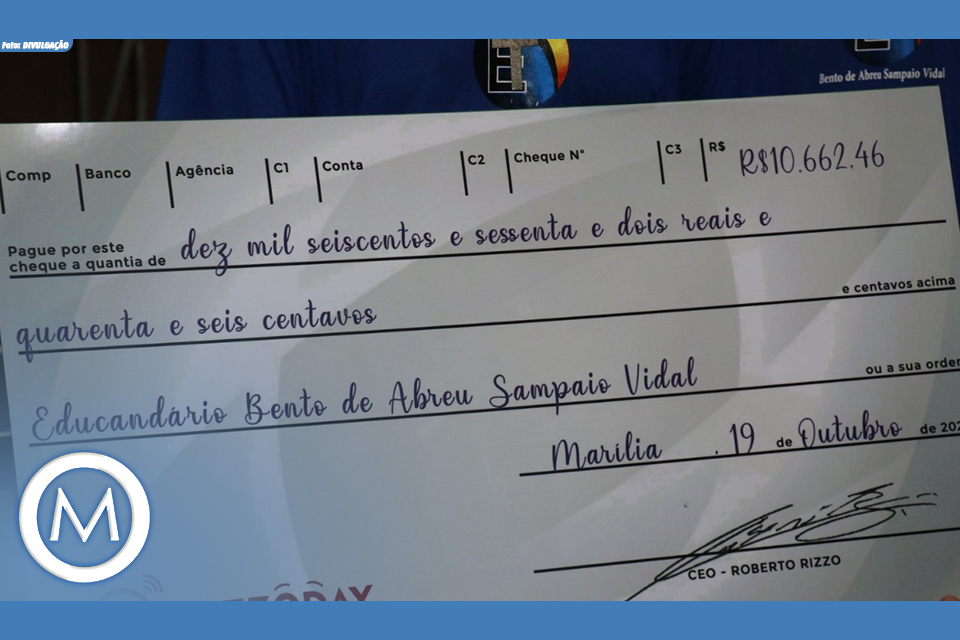 Foto: DIVULGAÇÃO
Bento de Abreu Sampaio Vidal
Comp Banco Agência C1 Conta C2 Cheque N° C3 R$ R$10.662.46
Pague por este
cheque a quantia de dez mil seiscentos e sessenta e dois reais e
quarenta e seis centavos e centavos acima
Educandário Bento de Abreu Sampaio Vidal ou a sua ordem
Marília . 19 de Outubro de 202
CEO - ROBERTO RIZZO
M